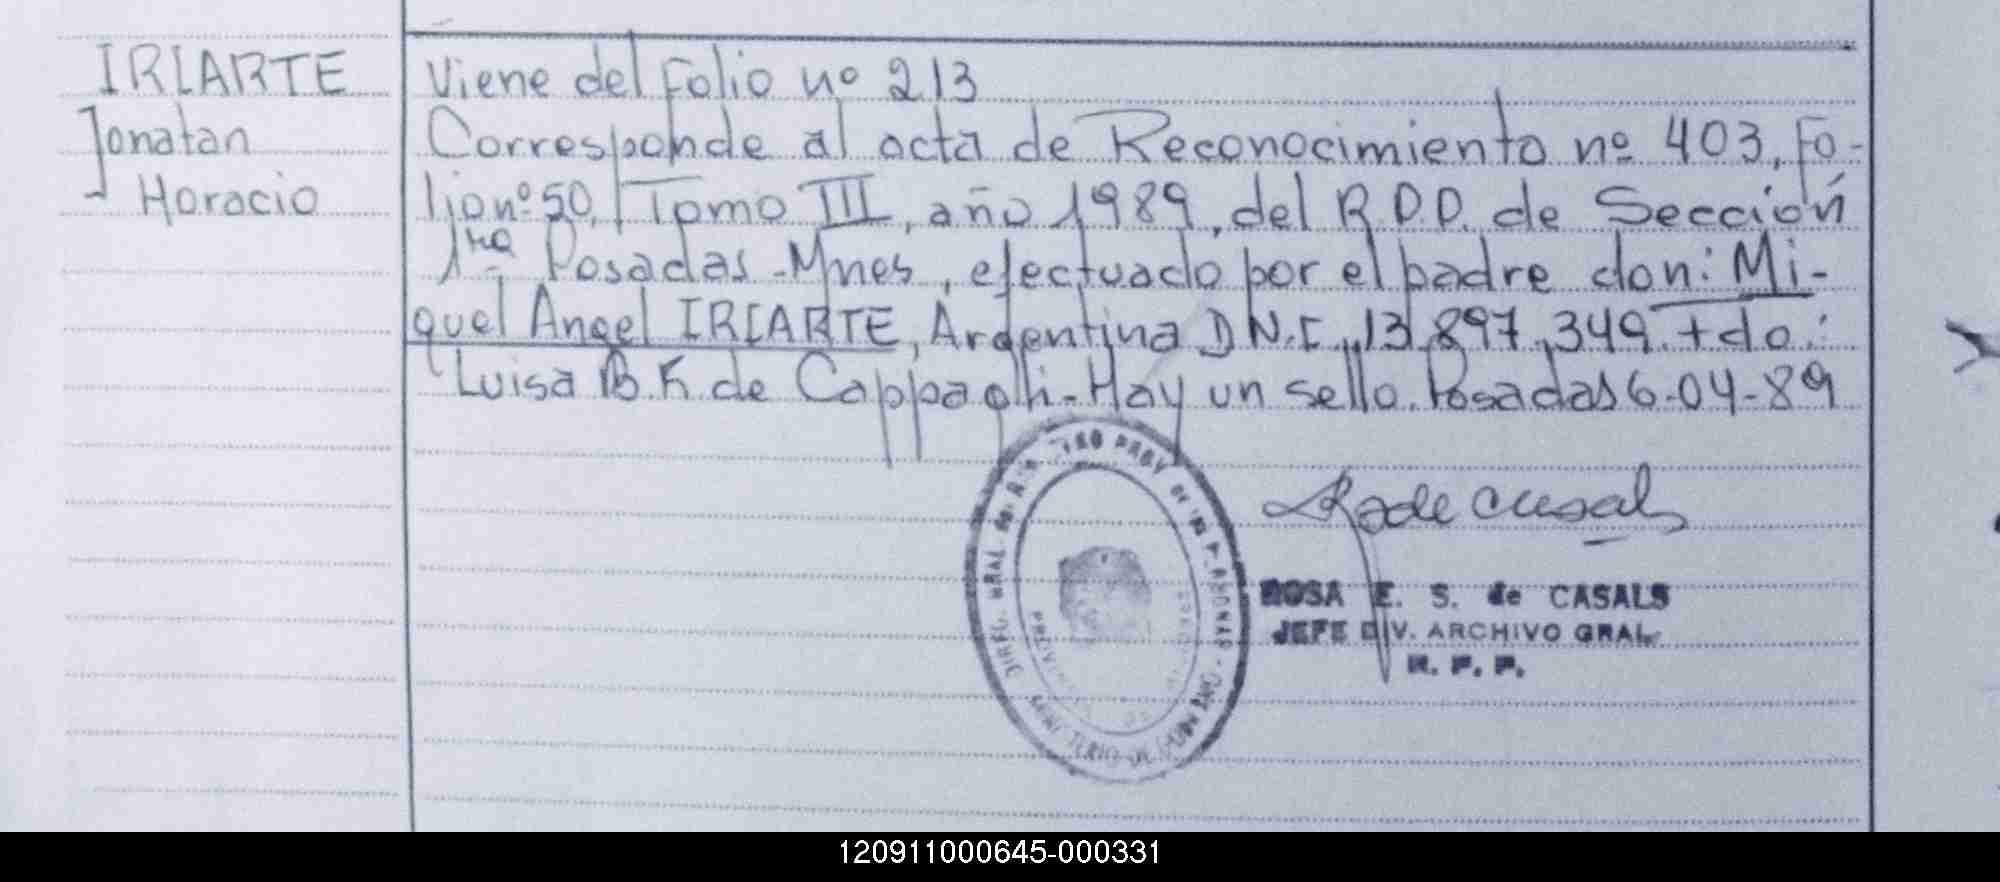 IRIARTE
Jonatan
Horacio
Viene del Folio nº 213
Corresponde al acta de Reconocimiento nº 403, Fo-
lio nº 50, Tomo III, año 1989, del R.D.D. de Sección
1ra Posadas-Mnes, efectuado por el padre don: Mi-
guel Angel IRIARTE, Argentina D.N.I. 13.897.349. Fdo:
Luisa B. K. de Cappaglli-Hay un sello. Posadas 6-04-89
DIREC. GRAL. del PROV. de las PERSONAS
ROSA E. S. de CASALS
JEFE DIV. ARCHIVO GRAL.
R. P. P.
120911000645-000331